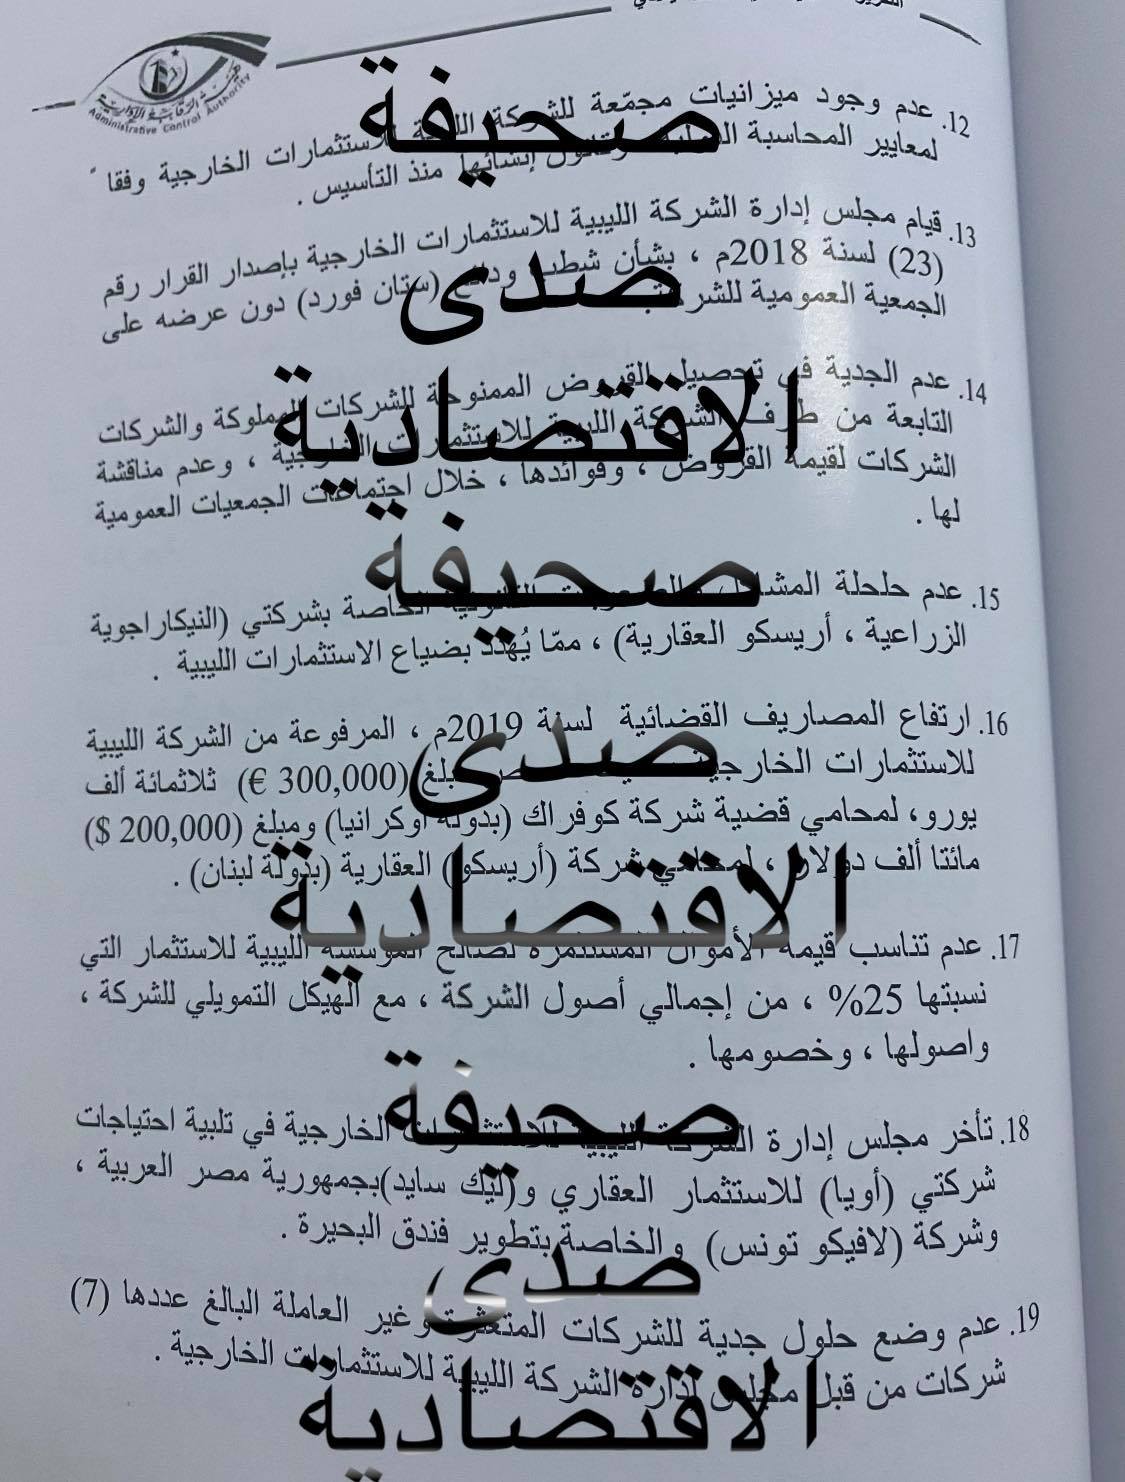 هيئة الرقابة الإدارية
Administrative Control Authority
12. عدم وجود ميزانيات مجمّعة للشركة الليبية للاستثمارات الخارجية وفقا ً
لمعايير المحاسبة منذ التأسيس .
13. قيام مجلس إدارة الشركة الليبية للاستثمارات الخارجية بإصدار القرار رقم
(23) لسنة 2018م ، بشأن شطب ودائع (ستان فورد) دون عرضه على
الجمعية العمومية للشركة
14. عدم الجدية في تحصيل القروض الممنوحة للشركات المملوكة والشركات
التابعة من طرف الشركة الليبية للاستثمارات الخارجية ، وعدم مناقشة
الشركات لقيمة القروض ، وفوائدها ، خلال اجتماعات الجمعيات العمومية
لها .
15. عدم حلحلة المشاكل الخاصة بشركتي (النيكاراجوية
الزراعية ، أريسكو العقارية) ، ممّا يُهدّد بضياع الاستثمارات الليبية .
16. ارتفاع المصاريف القضائية لسنة 2019م ، المرفوعة من الشركة الليبية
للاستثمارات الخارجية مبلغ (300,000 €) ثلاثمائة ألف
يورو، لمحامي قضية شركة كوفراك (بدولة أوكرانيا) ومبلغ (200,000 $)
مائتا ألف دولار ، لمحامي شركة (أريسكو) العقارية (بدولة لبنان) .
17. عدم تناسب قيمة الأموال المستثمرة لصالح المؤسسة الليبية للاستثمار التي
نسبتها 25% ، من إجمالي أصول الشركة ، مع الهيكل التمويلي للشركة ،
واصولها ، وخصومها .
18. تأخر مجلس إدارة الشركة الليبية للاستثمارات الخارجية في تلبية احتياجات
شركتي (أويا) للاستثمار العقاري و(ليك سايد)بجمهورية مصر العربية ،
وشركة (لافيكو تونس) والخاصة بتطوير فندق البحيرة .
19. عدم وضع حلول جدية للشركات المتعثرة وغير العاملة البالغ عددها (7)
شركات من قبل مجلس إدارة الشركة الليبية للاستثمارات الخارجية .
صحيفة
صدى
الاقتصادية
صحيفة
صدى
الاقتصادية
صحيفة
صدى
الاقتصادية